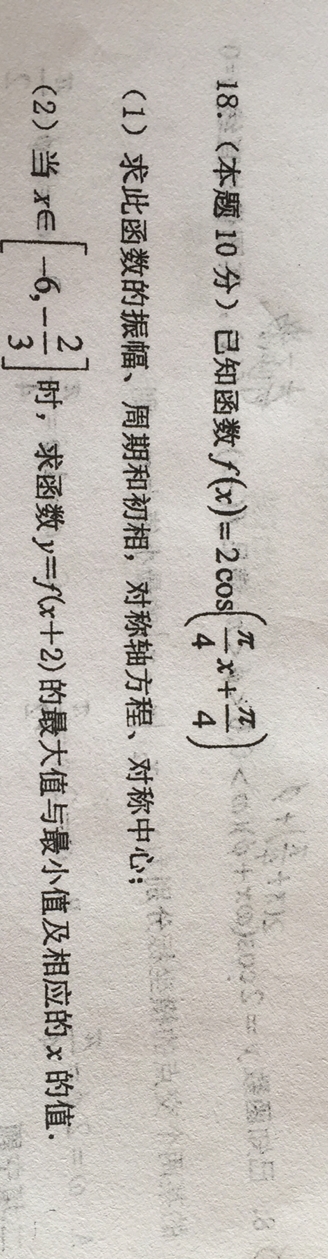 18.（本题 10 分）已知函数 f(x)=2cos(π/4 x+π/4)
（1）求此函数的振幅、周期和初相，对称轴方程、对称中心；
（2）当 x∈[-6,-2/3]时，求函数 y=f(x+2)的最大值与最小值及相应的 x 的值.